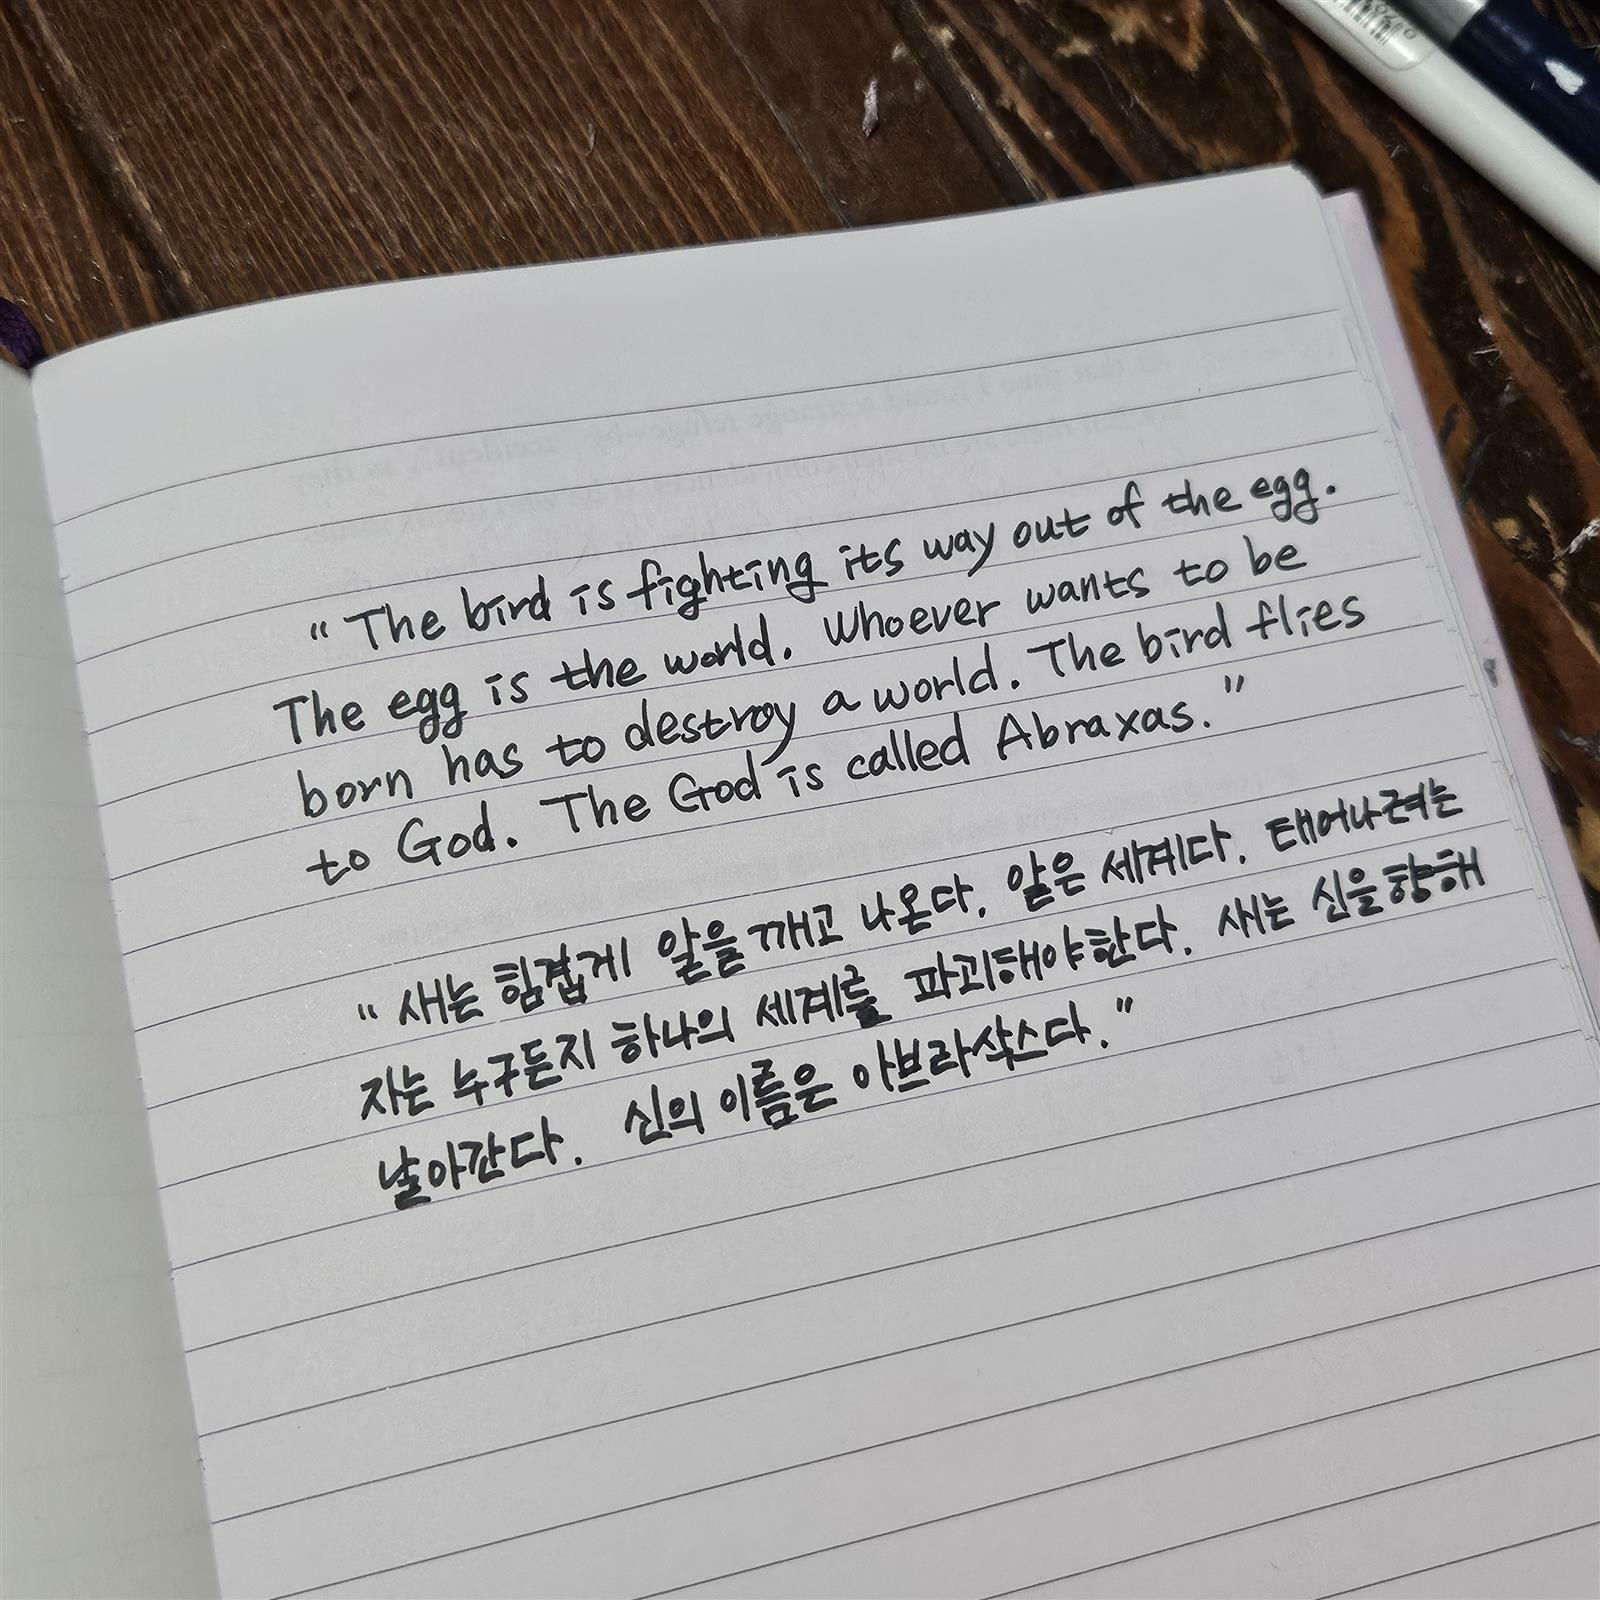 "The bird is fighting its way out of the egg.
The egg is the world. Whoever wants to be
born has to destroy a world. The bird flies
to God. The God is called Abraxas."
"새는 힘겹게 알을 깨고 나온다. 알은 세계다. 태어나려는
자는 누구든지 하나의 세계를 파괴해야한다. 새는 신을 향해
날아간다. 신의 이름은 아브라삭스다."